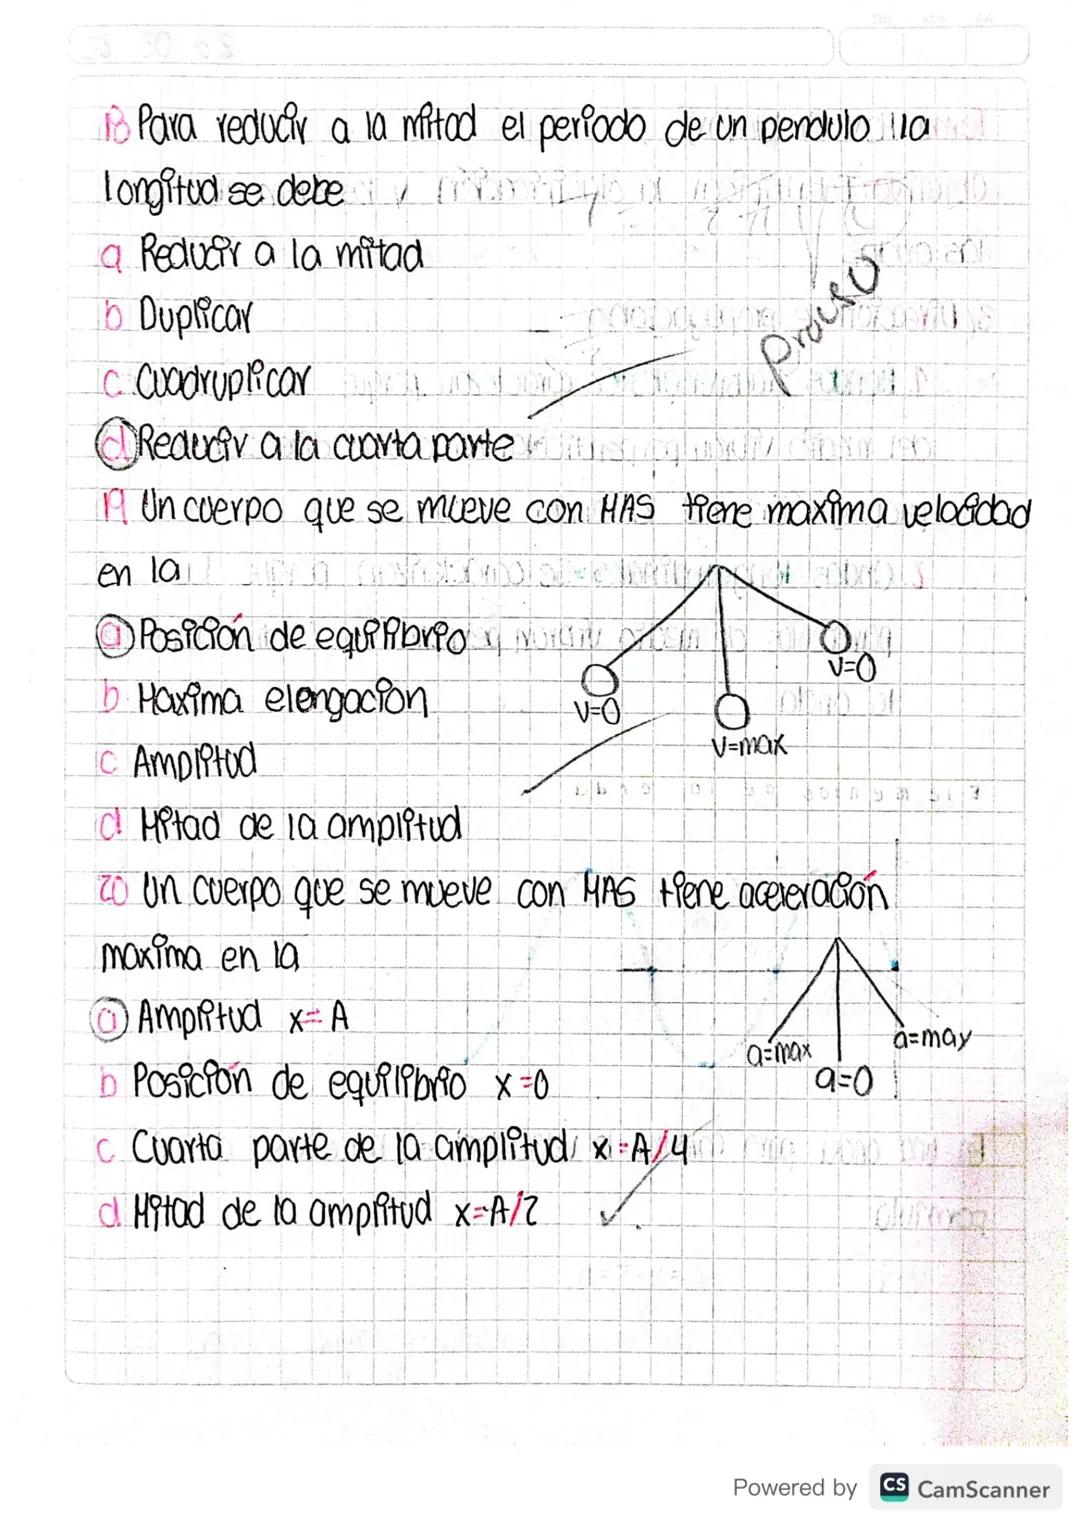 18 Para reducir a la mitad el periodo de un pendulo la
longitud se debe
a Reducir a la mitad
b Duplicar
c Cuadruplicar
d Reducir a la cuarta parte
19 Un cuerpo que se mueve con MAS tiene maxima velocidad
en la
a Posición de equilibrio
b Maxima elongacion
c Amplitud
d Mitad de la amplitud
V=0
V=max
V=0
20 Un cuerpo que se mueve con MAS tiene aceleración
maxima en la
a Amplitud x=A
b Posición de equilibrio x=0
c Cuarta parte de la amplitud x=A/4
d Mitad de la amplitud x=A/2
a=max
a=0
a=may
Powered by CS CamScanner